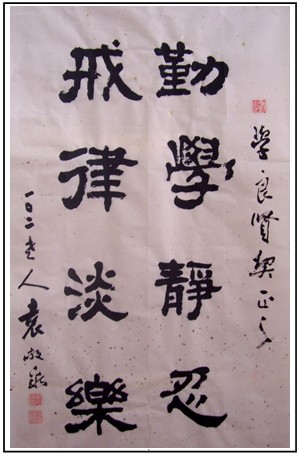 學良賢契正之
勤學靜忍
戒律淡樂
一百二老人袁敬銘